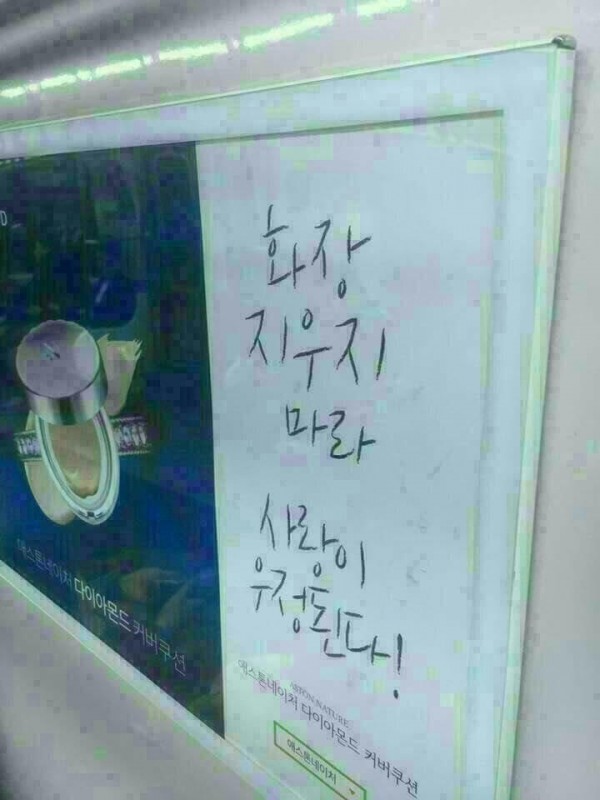 화장
지우지
마라
사랑이
우정된다!
ASTON NATURE
애스톤네이처 다이아몬드 커버쿠션
애스톤네이처
애스톤네이처 다이아몬드 커버쿠션